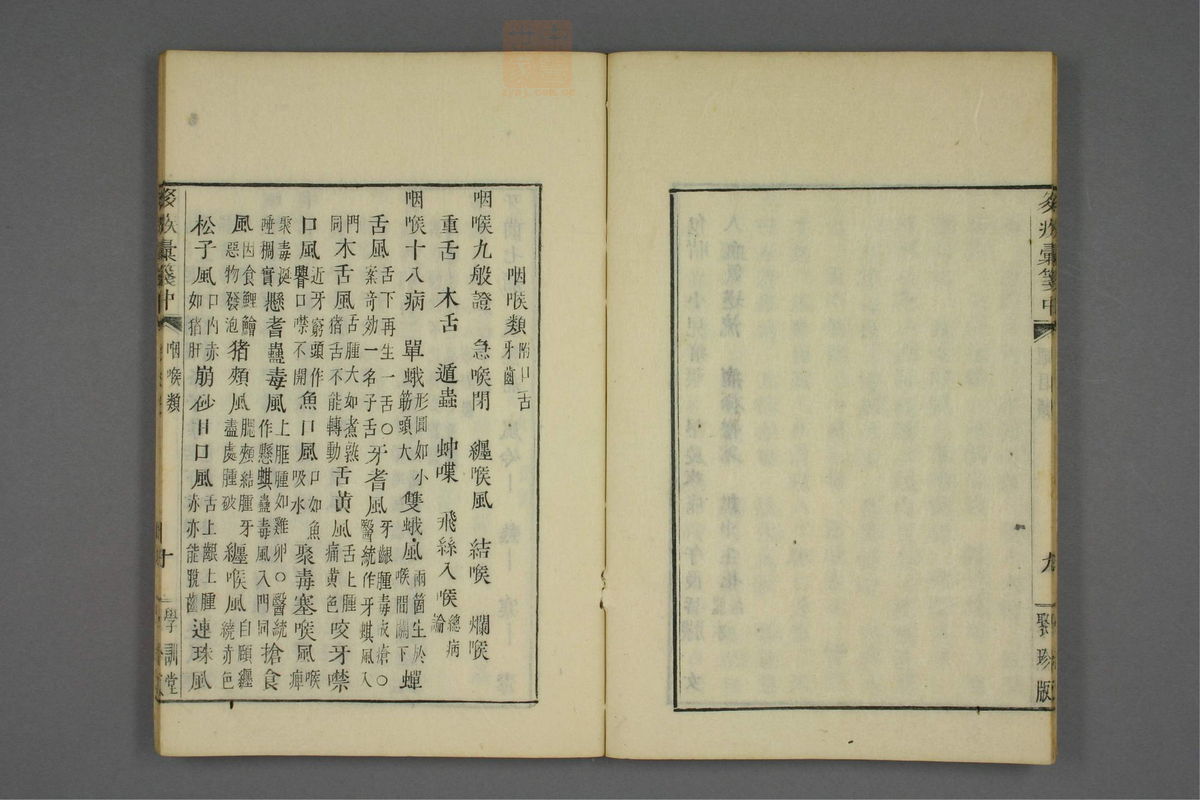 彙箋中
九
聚珍版
咽喉類 附口舌牙齒
咽喉九般證 急喉閉 纏喉風 結喉 爛喉
重舌 木舌 遁蟲 蚛喋 飛絲入喉 總病論
咽喉十八病 單蛾 形圓如小筋頭大 雙蛾風 兩箇生於喉間關下 蟬
舌風 舌下再生一舌○案奇効一名子舌 牙耆風 牙齦腫毒成瘡○醫統作牙蜞風入
門同 木舌風 舌腫大如煮熟猪舌不能轉動 舌黄風 舌上腫痛黄色 咬牙噤
口風 近牙窮頭作臖口噤不開 魚口風 口如魚吸水 聚毒塞喉風 喉痺
聚毒涎唾稠實 懸耆蠱毒風 上腭腫如雞卵○醫統作懸蜞蠱毒風入門同 搶食
風 因食鯉鱠惡物發泡 猪頰風 腮頰結腫牙盡處腫破 纏喉風 自頤纏繞赤色
松子風 口内赤如猪肝 崩砂甘口風 舌上齦上腫赤亦能脫齒 連珠風
彙箋中
咽喉類
十
學訓堂